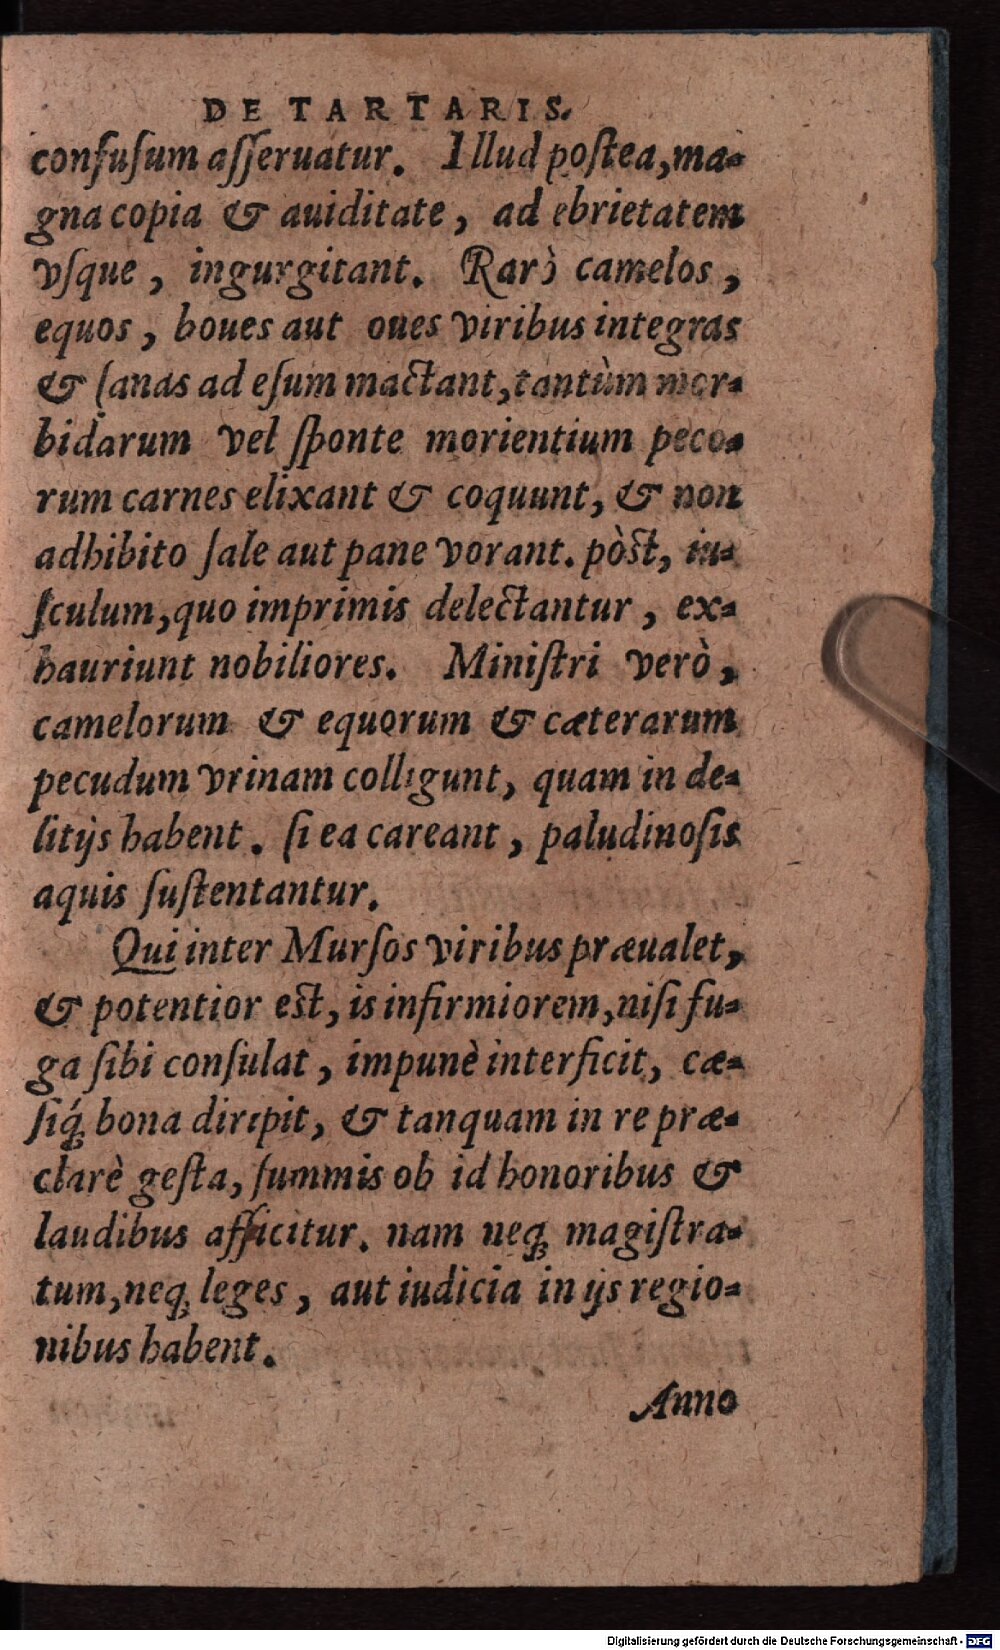 DE TARTARIS.
confuſum aſſeruatur. Illud poſtea, ma-
gna copia & auiditate, ad ebrietatem
vſque, ingurgitant. Rarò camelos,
equos, boues aut oues viribus integras
& ſanas ad eſum mactant, tantùm mor-
bidarum vel ſponte morientium peco-
rum carnes elixant & coquunt, & non
adhibito ſale aut pane vorant. pòſt, iu-
ſculum, quo imprimis delectantur, ex-
hauriunt nobiliores. Miniſtri verò,
camelorum & equorum & cæterarum
pecudum vrinam colligunt, quam in de-
litijs habent. ſi ea careant, paludinoſis
aquis ſuſtentantur.
Qui inter Murſos viribus præualet,
& potentior eſt, is infirmiorem, niſi fu-
ga ſibi conſulat, impunè interficit, cæ-
ſiq́; bona diripit, & tanquam in re præ-
clarè geſta, ſummis ob id honoribus &
laudibus afficitur. nam neq; magiſtra-
tum, neq; leges, aut iudicia in ijs regio-
nibus habent.
Anno
Digitalisierung gefördert durch die Deutsche Forschungsgemeinschaft - DFG